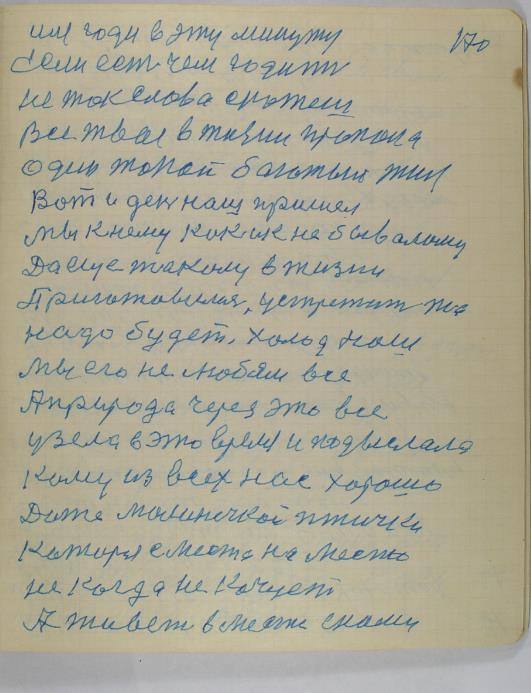 или годи в эту минуту 170
Если есть чем годить
не так слова скажеш
Все твое в жизни пропало
один такой багатый жил
Вот и ден наш пришел
мы к нему как и к не бывалому
Да еще такому в жизни
Приготовился, устретит
надо будет. холод наш
мы его не любям все
А природа через это все
узела в это время и подвыслала
Кому из всех нас хорошо
Даже малинечкой птички
Каторя с места на место
не когда не кочует
А живет в месте с нами